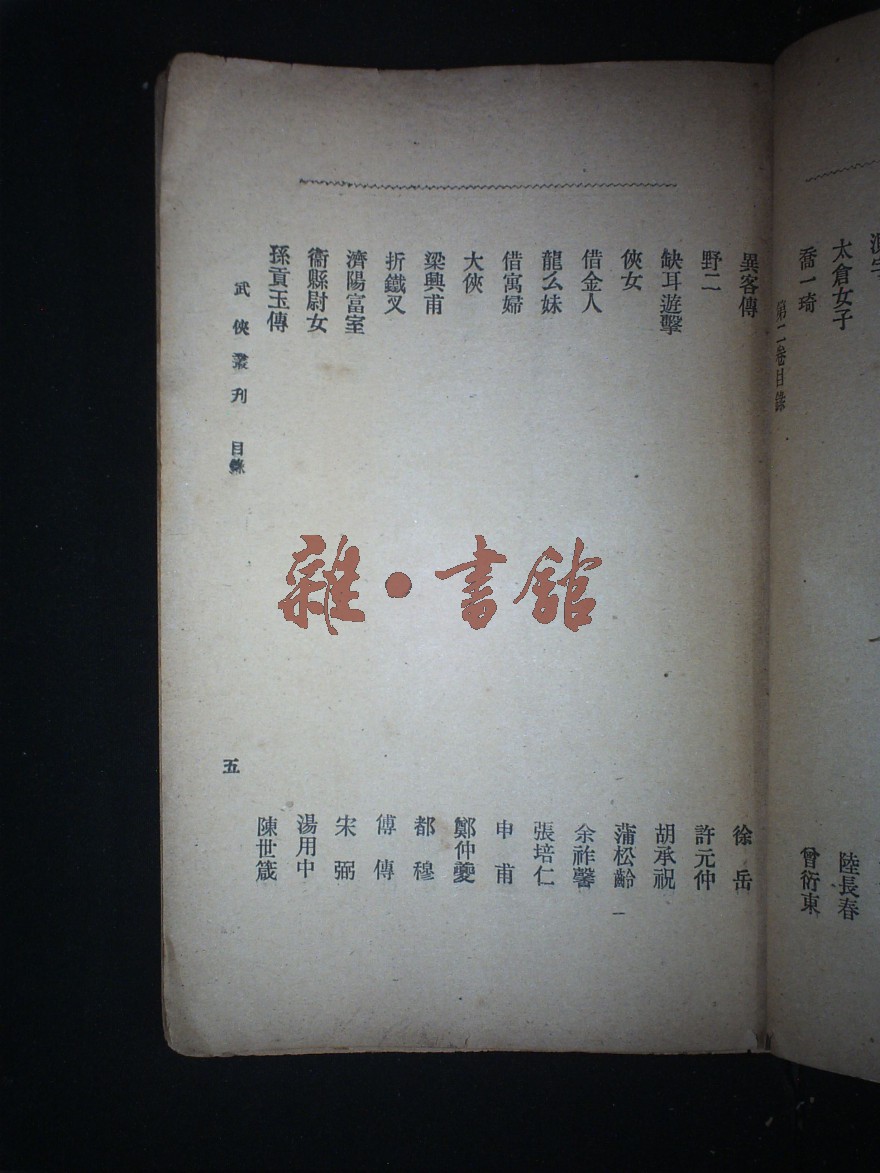 太倉女子 陸長春
喬一琦 曾衍東
第二卷目錄
異客傳 徐岳
野二 許元仲
缺耳遊擊 胡承祝
俠女 蒲松齡
借金人 余祚馨
龍么妹 張培仁
借寓婦 申甫
大俠 鄭仲夔
梁興甫 都穆
折鐵叉 傅傳
濟陽富室 宋弼
衞縣尉女 湯用中
孫貢玉傳 陳世箴
武俠叢刊 目錄 五
雜·書館